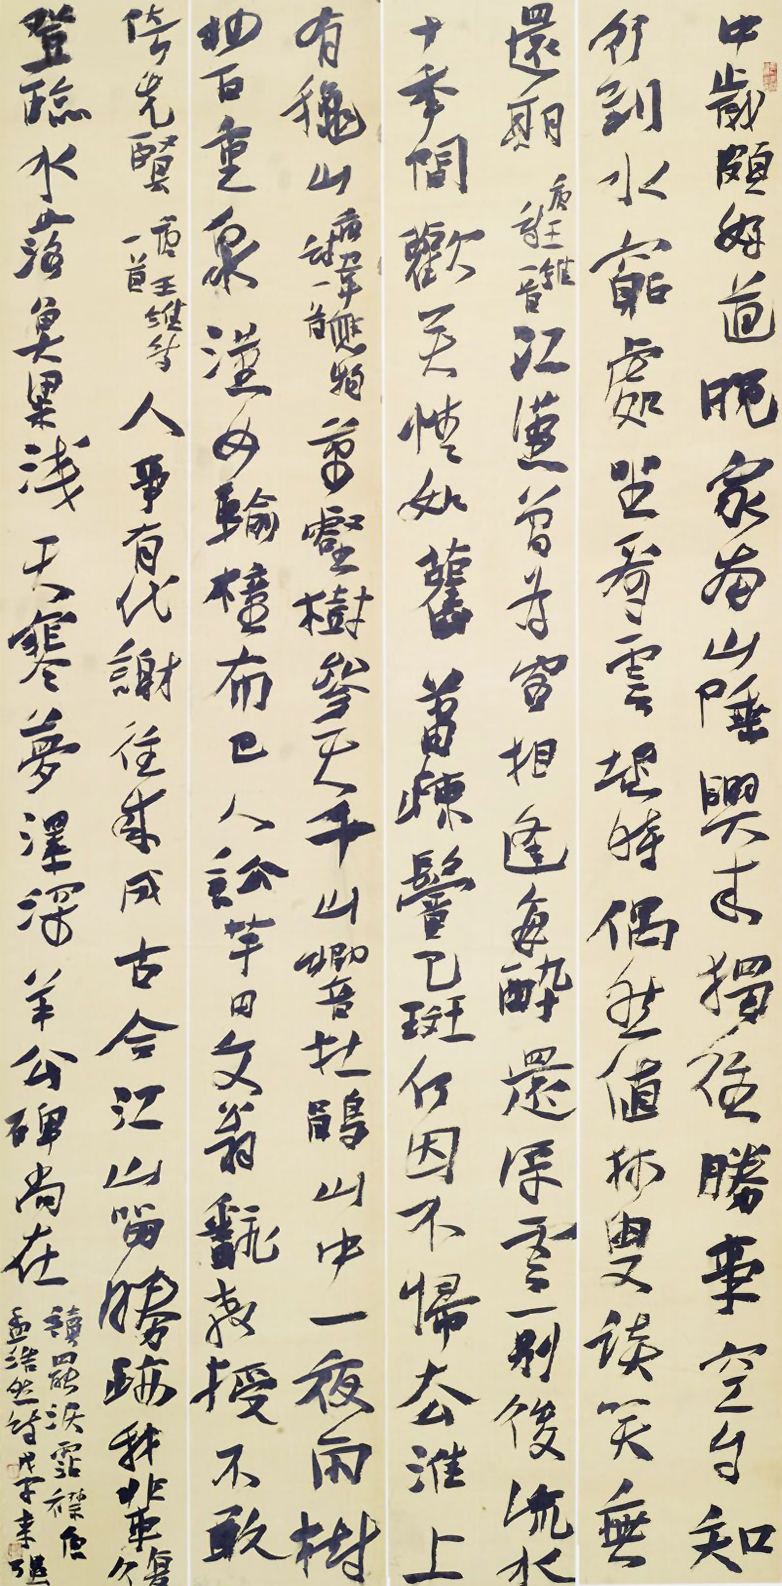 中歲頗好道晚家南山陲興來獨往勝事空自知
行到水窮處坐看雲起時偶然值林叟談笑無
還期
唐王維
詩一首
江漢曾為客相逢每醉還浮雲一別後流水
十年間歡笑情如舊蕭疎鬢已斑何因不歸去淮上
有穐山
唐韋應物
詩一首
萬壑樹參天千山響杜鵑山中一夜雨樹
杪百重泉漢女輸橦布巴人訟芋田文翁翻教授不敢
倚先賢
唐王維詩
一首
人事有代謝往來成古今江山留勝跡我輩復
登臨水落魚梁淺天寒夢澤深羊公碑尚在
讀罷淚霑襟唐
孟浩然詩戊子